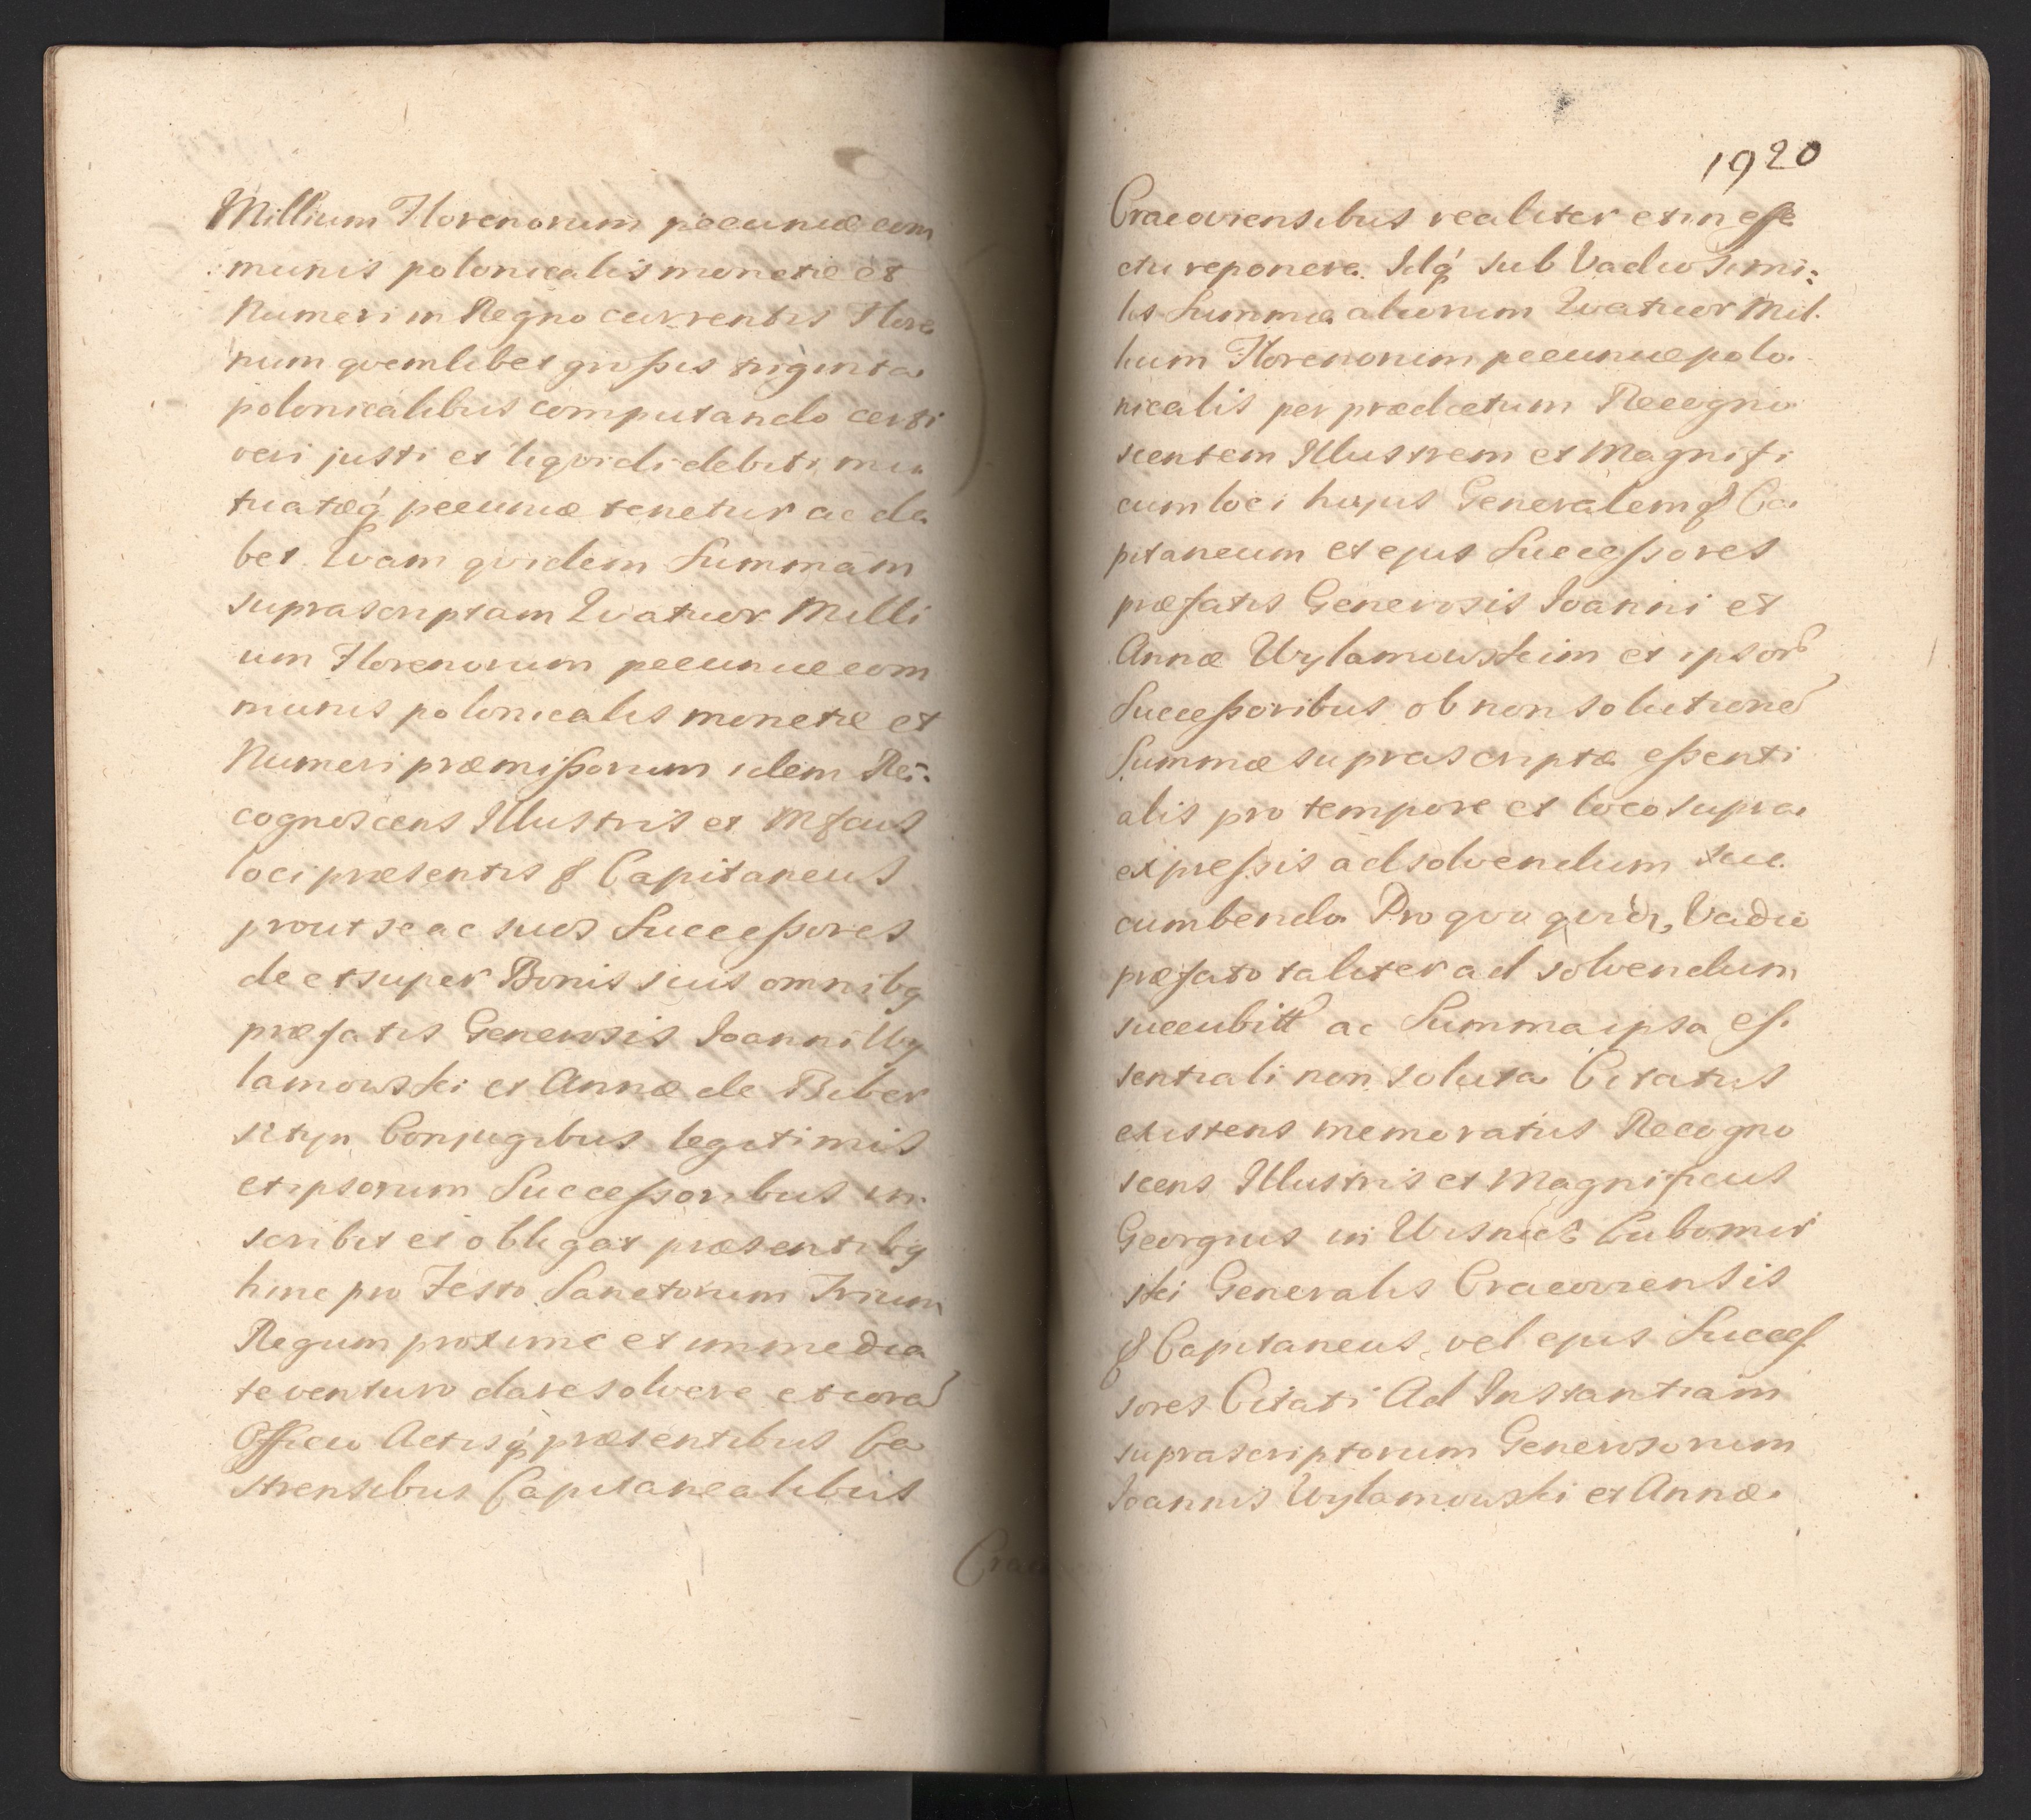 Millium Florenorum pecuniæ com
munis polonicalis monetæ et
Numeri in Regno currentis Flore
num qvemlibet großis triginta
polonicalibus computando certi
veri justi et liqvidi debiti, mu
tuatæq́ pecuniæ tenetur ac de
bet. Qvam qvidem Summam
suprascriptam Qvatuor Milli
um Florenorum pecuniæ com
munis polonicalis monetæ et
Numeri præmißorum idem Re:
cognoscens Illustris et Mfcus
loci præsentis & Capitaneus
prout se ac suos Succeßores
de et super Bonis suis omnibq
præfatis Generosis Joanni Wy
lamowski et Annæ de Biber
sztyn Conjugibus legitimis
et ipsorum Succeßoribus in.
scribit et obligat præsentibq
hinc pro Festo Sanctorum Trium
Regum proxime et immedia
te venturo dare solvere et cora
Officio Actisq́ præsentibus Ca
strensibus Capitanealibus
1920
Cracoviensibus realiter et in effe
ctu reponere. Idq́ sub Vadio simi:
lis Summæ aliorum Qvatuor Mil.
lium Florenorum pecuniæ polo.
nicalis per prædictum Recogno
scentem Illustrem et Magnifi
cum loci hujus Generalem & Ca
pitaneum et ejus Succeßores
præfatis Generosis Joanni et
Annæ Wylamowskim et ipsor
Succeßoribus ob non solutione
Summæ suprascriptæ eßenti
alis pro tempore et loco supra
expreßis ad solvendum suc
cumbendo Pro qvo qvid, Vadio
præfato taliter ad solvendum
succubitt ac Summa ipsa es.
sentiali non soluta Citatus
existens memoratus Recogno
scens Illustris et Magnificus
Georgius in Wisnicz Lubomir
ski Generalis Cracoviensis
& Capitaneus, vel ejus Succes
sores Citati Ad Instantiam
suprascriptorum Generosorum
Joannis Wylamowski et Annæ